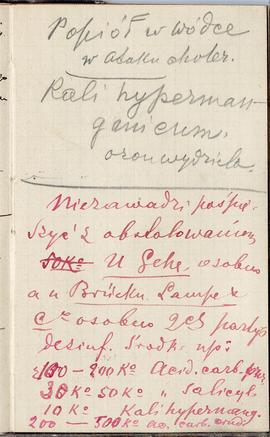 Popiół w wódce
w ataku choler.
Kali hyperman-
ganicum.
ozon wydziela.
Niezawadzi pośpie-
szyć z obstalowaniem
50 Ko U Gehe, osobno
a u Brückn. Lampe &
Co osobno 2ej partyi
dezinf. środk. np.
100 - 200 Ko Acid. carb.
30 Ko 50 Ko " Salicyl.
10 Ko Kali hypermang.
200 — 300 Ko ac. carb. crud.